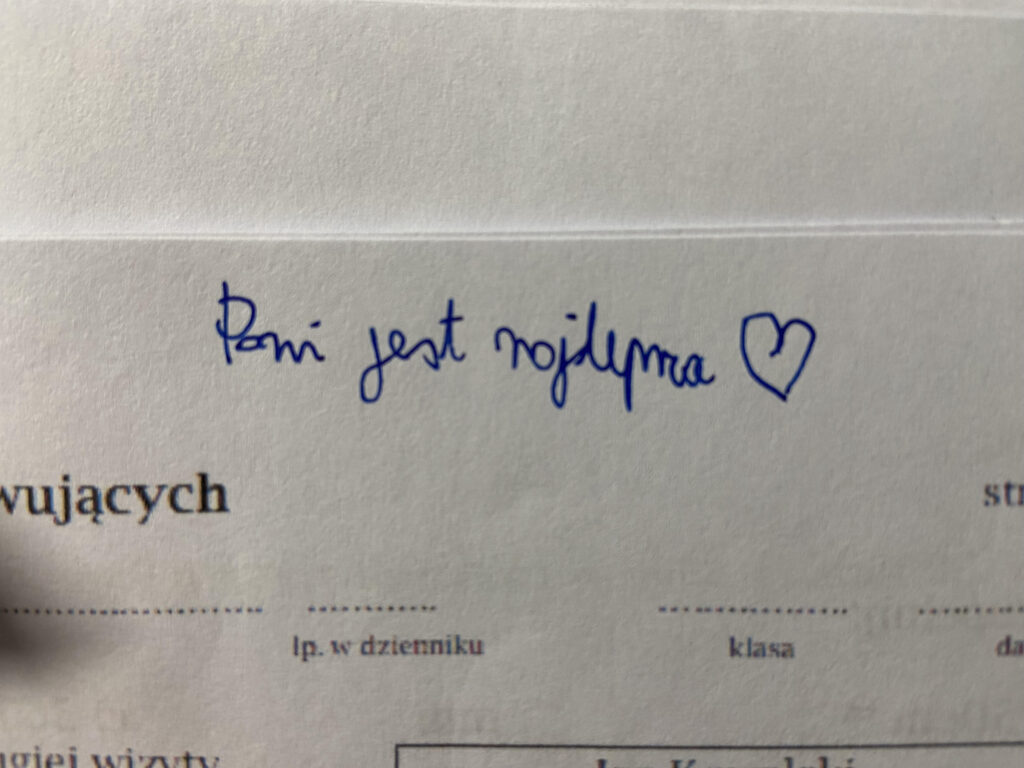 Pani jest najlepsza ♡
wujących
lp. w dzienniku
klasa
wizyty